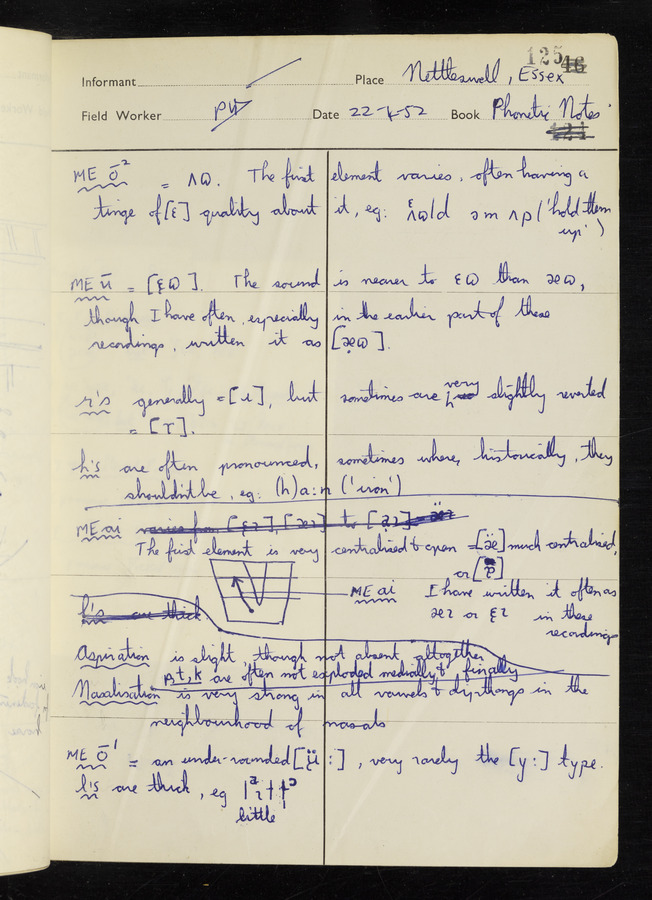 125 46
Informant Place Nettleswell, Essex
Field Worker PW Date 22-4-52 Book Phonetic Notes
121
ME ō² = ʌɷ. The first element varies, often having a
tinge of [ɛ] quality about it, eg: ʌɷld əm ʌp ('hold them
up')
ME ū = [ɛɷ]. The sound is nearer to ɛɷ than æɷ,
though I have often, especially in the earlier part of these
recordings, written it as [æɷ].
r's generally = [ɹ], but sometimes are very slightly reverted
= [ɽ].
h's are often pronounced, sometimes where, historically, they
shouldn't be, eg: (h)a:n ('iron')
ME ai varies from [ɛɪ], [æɪ] to
The first element is very centralised & open = [æ̈] much centralised,
or [ɐ]
ME ai I have written it often as
æɪ or ɛɪ in these
recordings
l's are thick
Aspiration is slight, though not absent altogether.
p, t, k are often not exploded medially & finally
Nasalisation is very strong in all vowels & dipthongs in the
neighbourhood of nasals
ME ō¹ = an under-rounded [ü:], very rarely the [y:] type.
l's are thick, eg
little